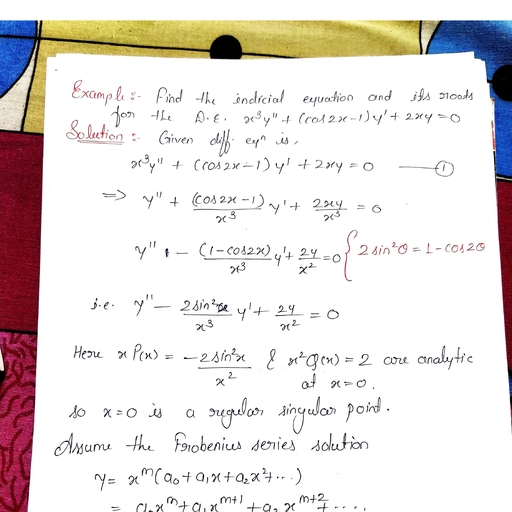 Example:- Find the indicial equation and its roots
for the D.E. x³y'' + (cos2x-1)y' + 2xy = 0
Solution:- Given diff. eqⁿ is,
x³y'' + (cos2x-1)y' + 2xy = 0 —①
⇒ y'' + (cos2x-1)/x³ y' + 2xy/x³ = 0
y'' - (1-cos2x)/x³ y' + 2y/x² = 0 { 2sin²θ = 1-cos2θ
i.e. y'' - 2sin²x/x³ y' + 2y/x² = 0
Here xP(x) = -2sin²x/x² & x²Q(x) = 2 are analytic
at x=0.
so x=0 is a regular singular point.
Assume the Frobenius series solution
y = x^m(a₀+a₁x+a₂x²+...)
= a₀x^m+a₁x^{m+1}+a₂x^{m+2}+....